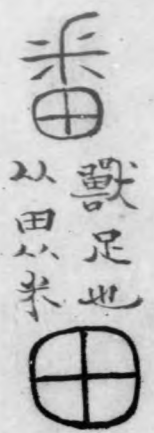 番
獸足也
从田从米
田